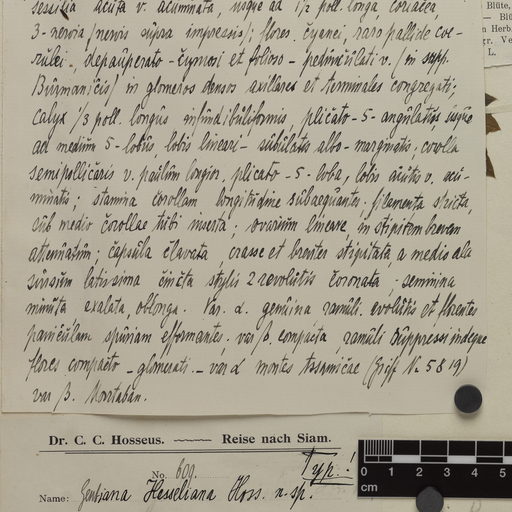 sessilia acuta v. acuminata, usque ad 1/2 poll. longa coriacea,
3-nervia/nervis supra impressis/; flores, cyanei, raro pallide coe-
rulei, depauperato-cymosi et folioso-pedunculati v. /in supp.
Birmanicis/ in glomeros densos axillares et terminales congregati;
calyx 1/3 poll. longus infundibuliformis plicato-5-angulatus usque
ad medium 5-lobus lobis lineari-subulatis albo-marginatis; corolla
semipollicaris v. paulum longior, plicato-5-loba, lobis acutis v. acu-
minatis; stamina corollam longitudine subaequantes, filamenta stricta,
sub medio corollae tubi inserta; ovarium lineare, in stipitem brevem
attenuatum; capsula clavata, crasse et breviter stipitata, a medio ala
sursum latissima cincta stylis 2 revolutis coronata; semina
minuta exalata, oblonga. Var. α. genuina ramuli evoluti et florentes
paniculam spuriam efformantes. var β. compacta ramuli suppressi indeque
flores compacto-glomerati. - var α montes Assamicae (Griff № 5819)
var β. Martaban.
Dr. C. C. Hosseus. Reise nach Siam.
Typ.!
No. 609.
Name: Gentiana Hesseliana Hoss. n. sp.
0 1 2 3 4 5
cm
Blüte,
Blü
n Herb.
gr. Ve
L.